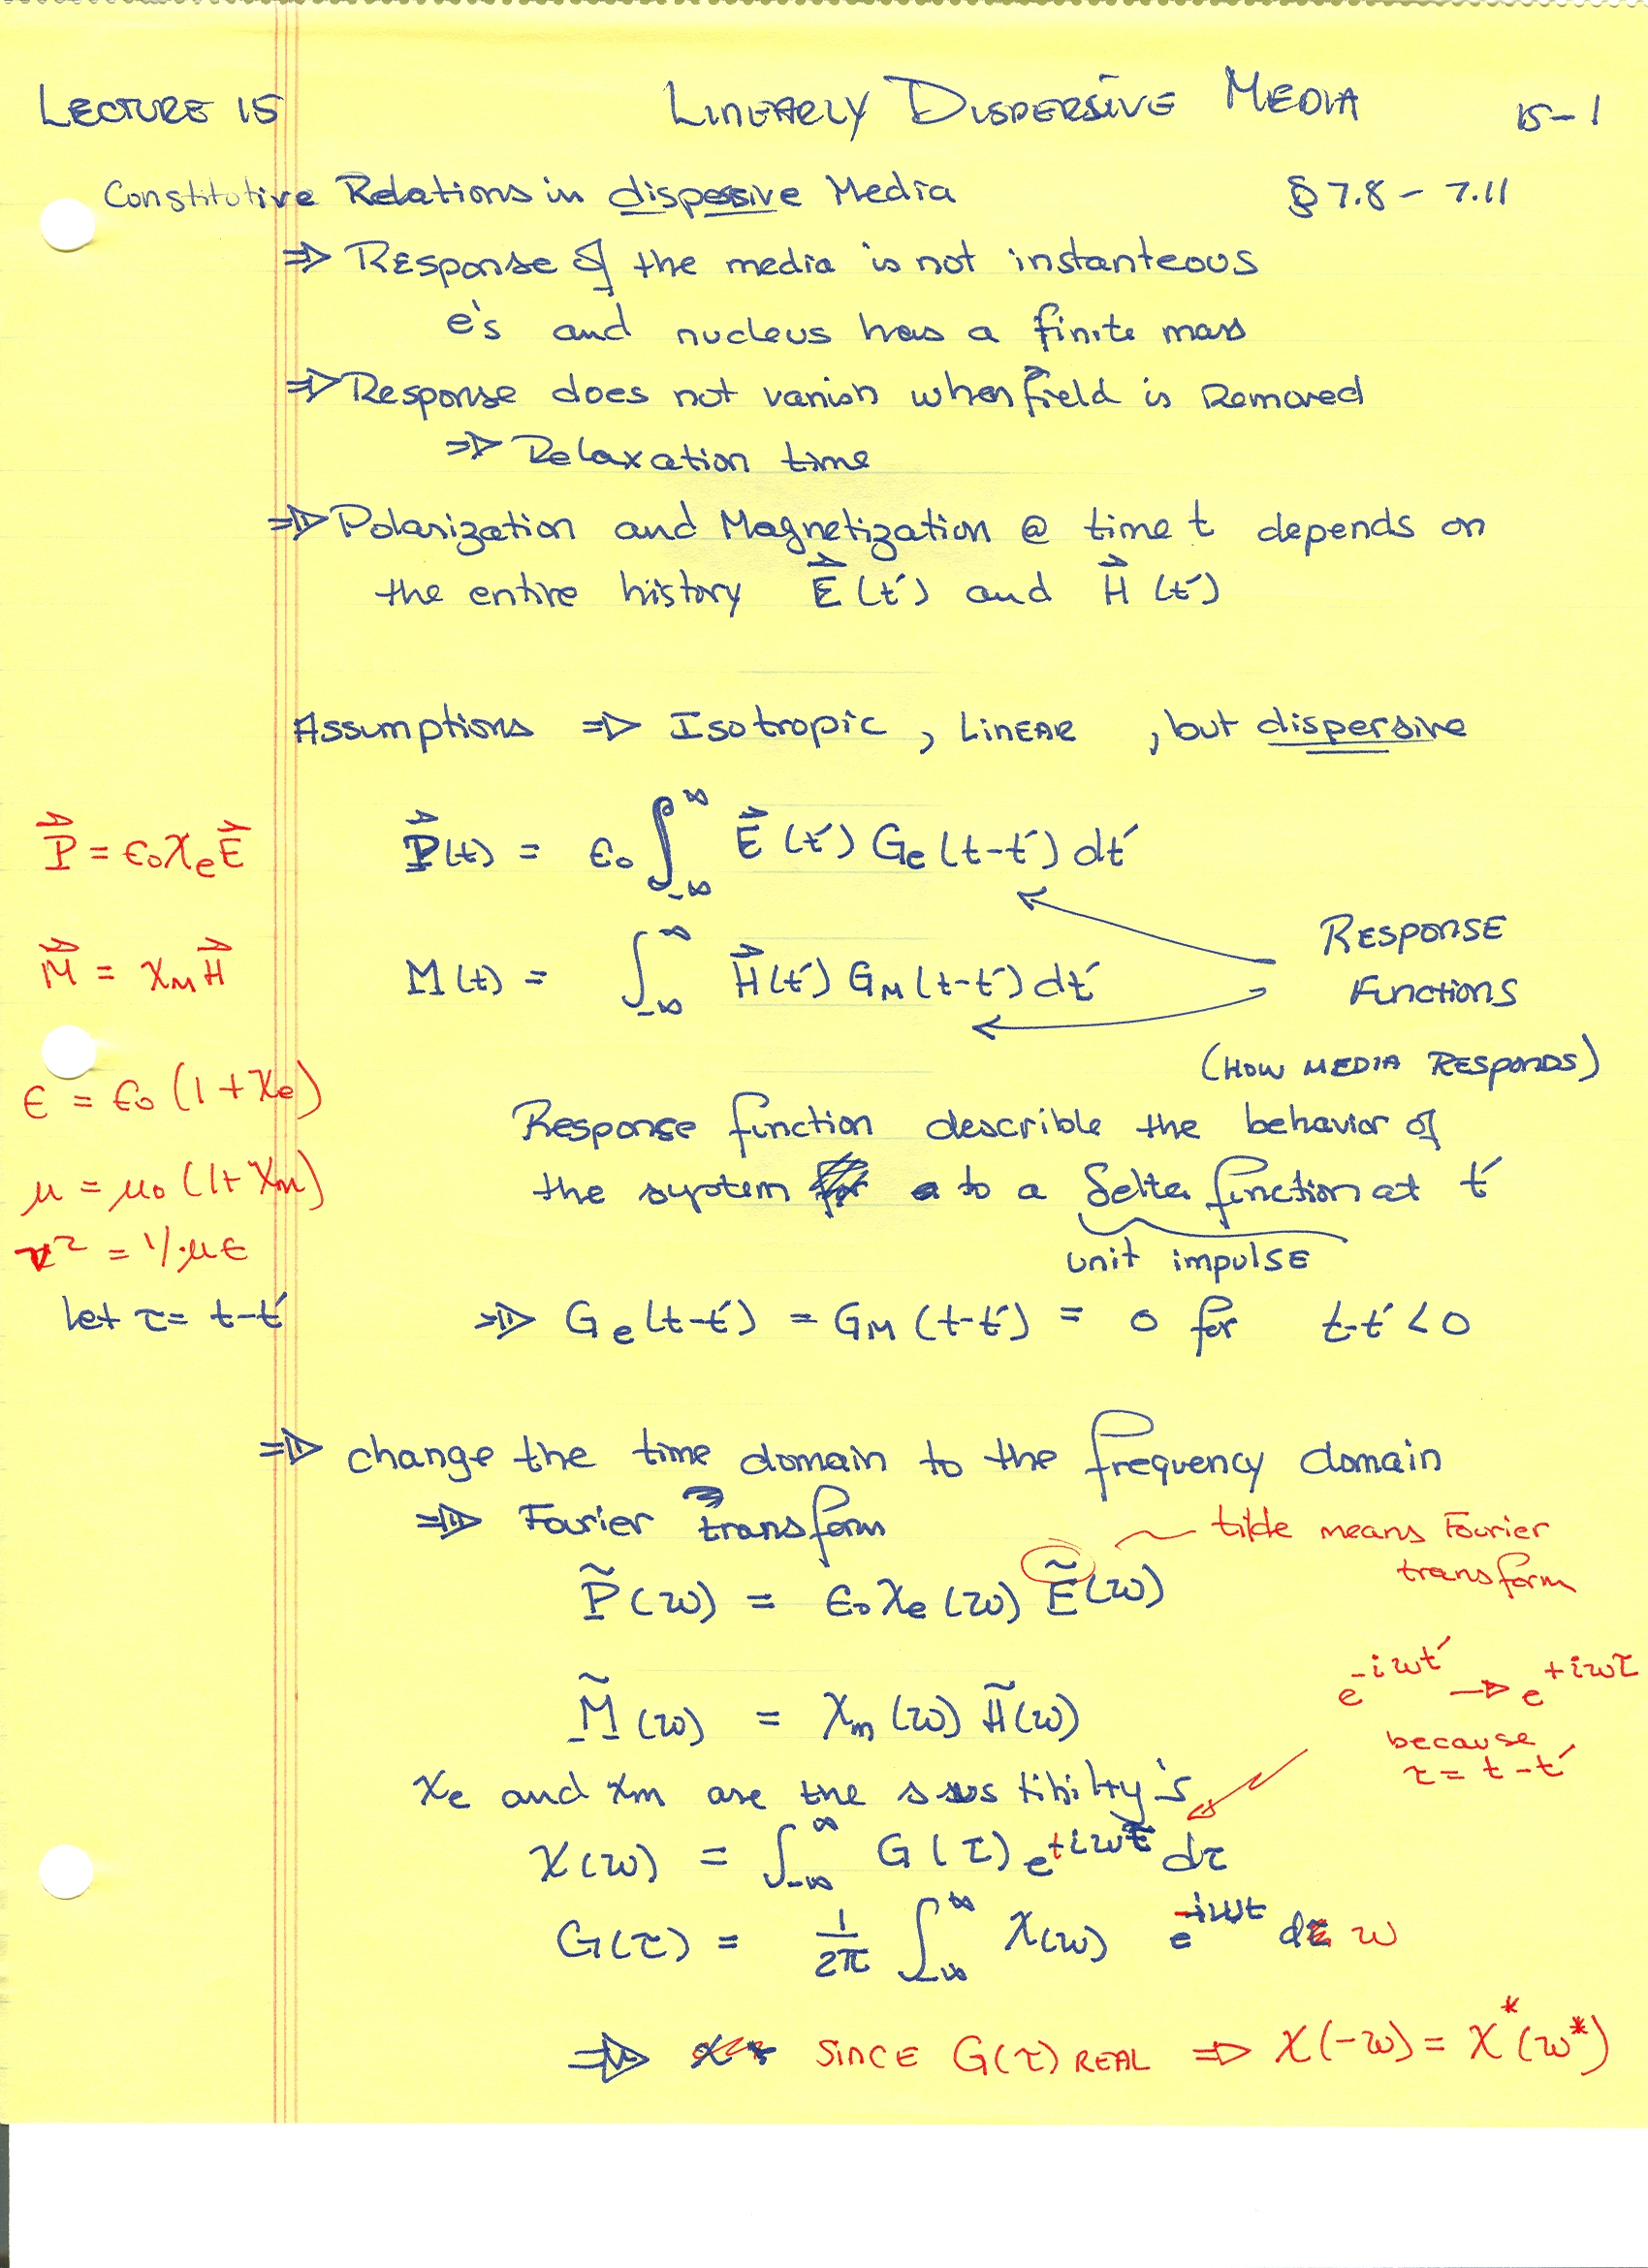 LECTURE 15 LINEARLY DISPERSIVE MEDIA 15-1
Constitutive Relations in dispersive Media § 7.8 - 7.11
⇒ Response of the media is not instanteous
e's and nucleus has a finite mass
⇒ Response does not vanish when field is Removed
⇒ Relaxation time
⇒ Polarization and Magnetization @ time t depends on
the entire history E⃗(t′) and H⃗(t′)
Assumptions ⇒ Isotropic, LINEAR, but dispersive
P⃗ = ε₀χₑE⃗ P⃗(t) = ε₀ ∫_{-∞}^{∞} E⃗(t′) Gₑ(t-t′) dt′
RESPONSE
M⃗ = χ_M H⃗ M(t) = ∫_{-∞}^{∞} H⃗(t′) G_M(t-t′) dt′
Functions
(HOW MEDIA RESPONDS)
ε = ε₀(1+χₑ)
Response function describle the behavior of
μ = μ₀(1+χₘ) the system to a delta function at t′
v² = 1/με unit impulse
let τ = t-t′ ⇒ Gₑ(t-t′) = G_M(t-t′) = 0 for t-t′ < 0
⇒ change the time domain to the frequency domain
⇒ Fourier transform
tilde means Fourier
transform
P̃(ω) = ε₀χₑ(ω) Ẽ(ω)
e^{-iωt′} → e^{+iωτ}
M̃(ω) = χₘ(ω) H̃(ω)
because
τ = t-t′
χₑ and χₘ are the susstibilty's
χ(ω) = ∫_{-∞}^{∞} G(τ) e^{+iωτ} dτ
G(τ) = 1/2π ∫_{-∞}^{∞} χ(ω) e^{-iωτ} dω
⇒ SINCE G(τ) REAL ⇒ χ(-ω) = χ*(ω*)